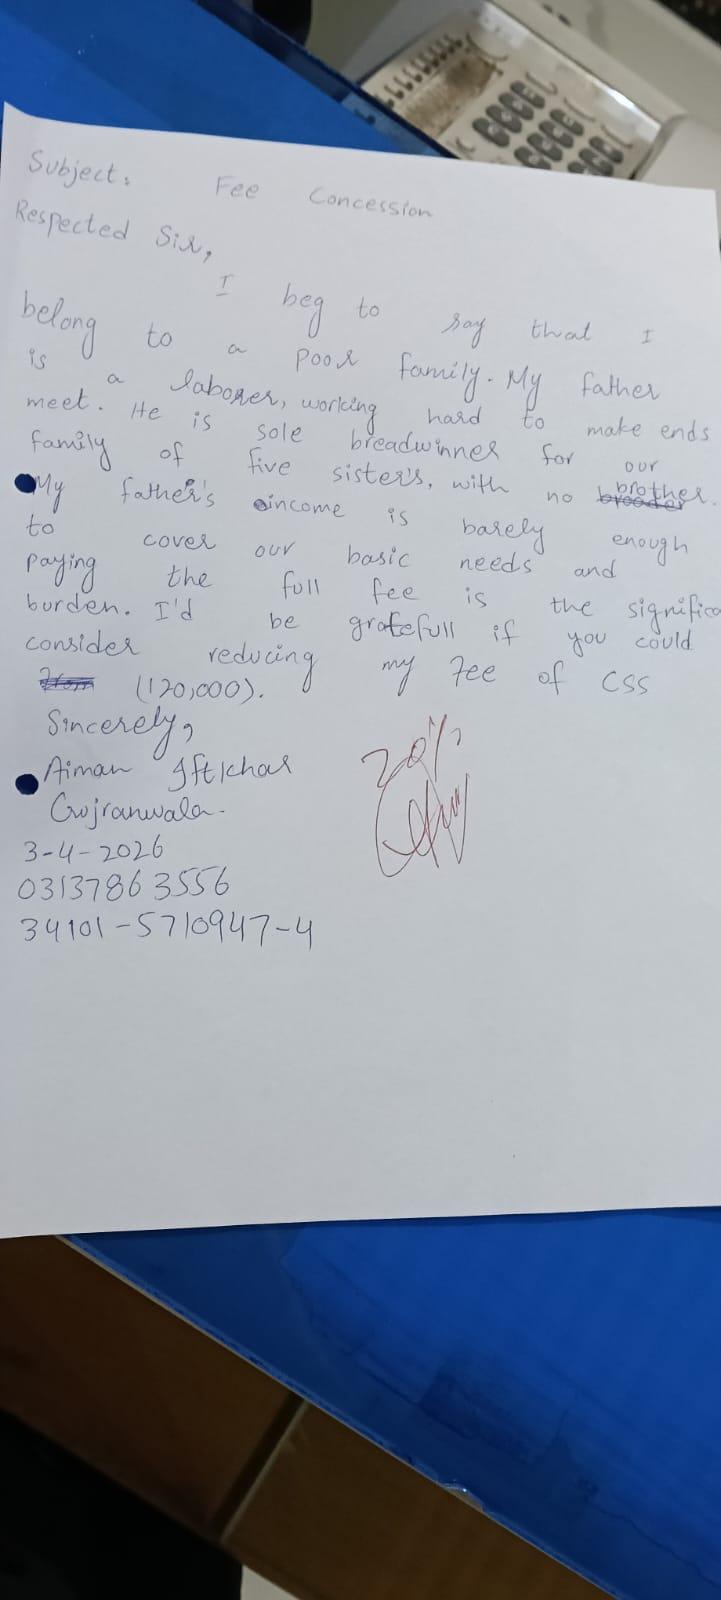 Subject: Fee Concession
Respected Sir,
I beg to say that I
belong to a poor family. My father
is a laborer, working hard to make ends
meet. He is sole breadwinner for our
family of five sister's, with no brother.
My father's income is barely enough
to cover our basic needs and
paying the full fee is the significa
burden. I'd be gratefull if you could
consider reducing my Fee of CSS
(120,000).
Sincerely,
Aiman Iftikhar
Gujranwala.
3-4-2026
03137863556
34101-5710947-4
20%